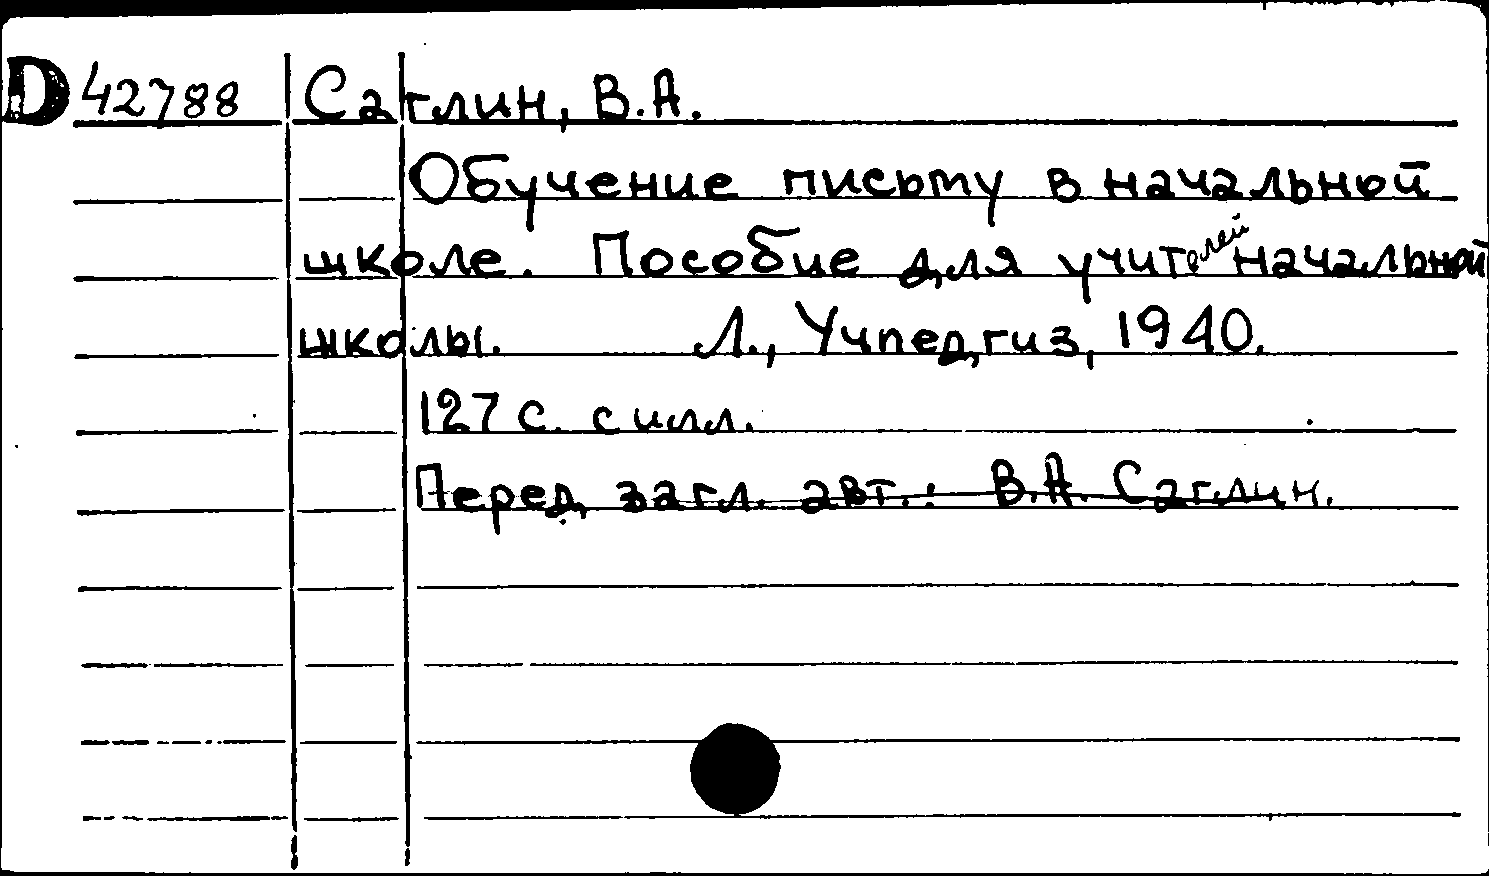 D 42788 Саглин, В.А.
Обучение письму в начальной
школе. Пособие для учителей начальной
школы. Л., Учпедгиз, 1940.
127 с. с илл.
Перед загл. авт.: В.А. Саглин.